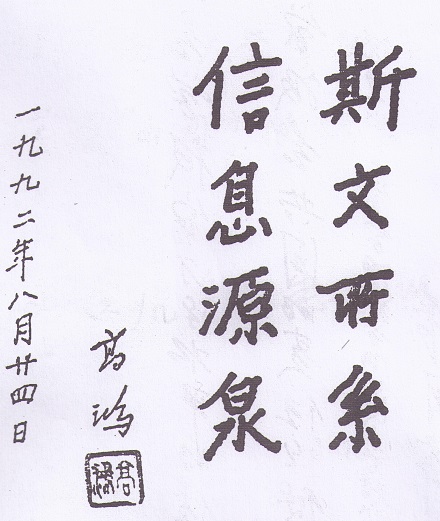 斯文所系
信息源泉
高鸿
一九九二年八月廿四日
高鸿